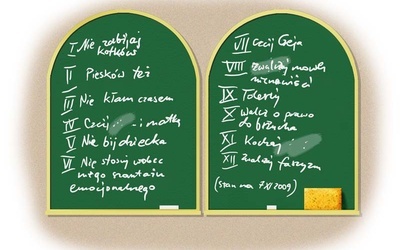 I Nie zabijaj
kotków
II Piesków też
III Nie kłam czasem
IV Czcij i matkę
V Nie bij dziecka
VI Nie stosuj wobec
niego szantażu
emocjonalnego
VII Czcij Geja
VIII zwalczaj mowę
nienawiści
IX Toleruj
X Walcz o prawo
do brzucha
XI Kochaj
XII Zwalczaj faszyzm
(stan na 7 XI 2009)